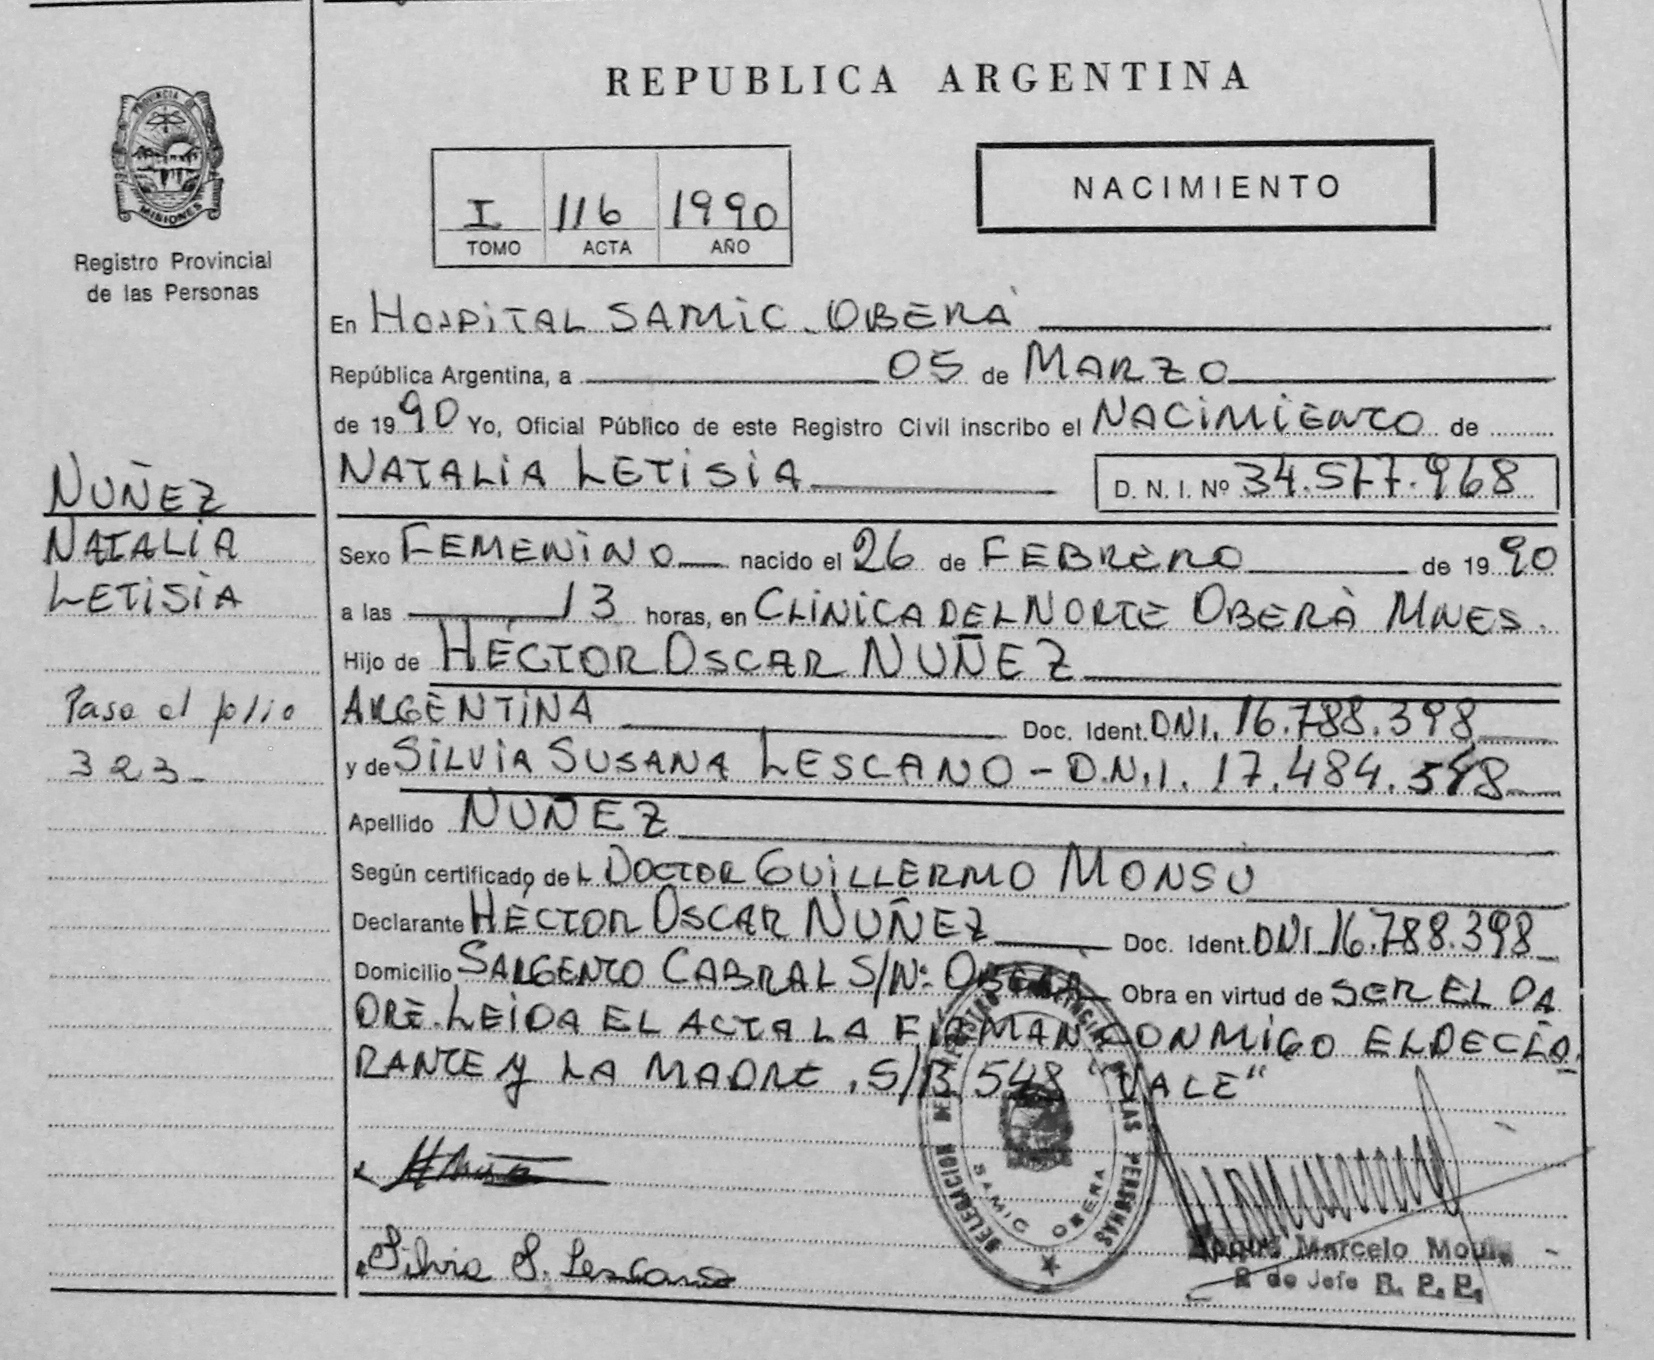 REPUBLICA ARGENTINA
PROVINCIA DE
MISIONES
Registro Provincial
de las Personas
I 116 1990
TOMO ACTA AÑO
NACIMIENTO
En HOSPITAL SAMIC. OBERÁ
República Argentina, a 05 de MARZO
de 1990 Yo, Oficial Público de este Registro Civil inscribo el NACIMIENTO de
NATALIA LETISIA D. N. I. Nº 34.577.968
NUÑEZ
NATALIA
LETISIA
Pasa al folio
323-
Sexo FEMENINO nacido el 26 de FEBRERO de 1990
a las 13 horas, en CLINICA DEL NORTE OBERÁ MNES.
Hijo de HÉCTOR OSCAR NUÑEZ
ARGENTINA Doc. Ident. DNI. 16.788.398
y de SILVIA SUSANA LESCANO - D.N.I. 17.484.548
Apellido NUÑEZ
Según certificado de L DOCTOR GUILLERMO MONSU
Declarante HÉCTOR OSCAR NUÑEZ Doc. Ident. DNI 16.788.398
Domicilio SARGENTO CABRAL S/Nº OBERÁ Obra en virtud de SER EL PA
DRE. LEIDA EL ACTA LA FIRMAN CONMIGO EL DECLA
RANTE Y LA MADRE. S/B 548 "VALE"
DELEGACION DEL REGISTRO PROVINCIAL DE LAS PERSONAS
SAMIC OBERA
Silvia S. Lescano
Marcelo
2 de Jefe R. P. P.